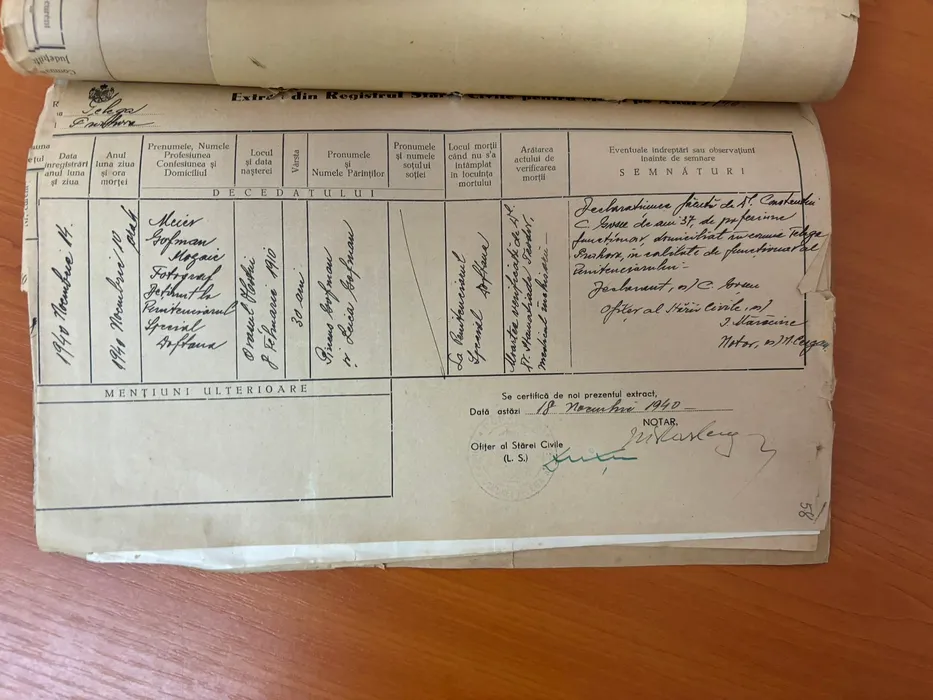 Extras din Registrul Stărei Civile pentru
Telega
Prahova
Data înregistrări anul luna și ziua
Anul luna ziua și ora morței
Prenumele, Numele Profesiunea Confesiunea și Domiciliul
Locul și data nașterei
Vârsta
Pronumele și Numele Părinților
Pronumele și numele soțului soției
Locul morții când nu s'a întâmplat în locuința mortului
Arătarea actului de verificarea morții
Eventuale îndreptări sau observațiuni înainte de semnare
SEMNĂTURI
DECEDATULUI
1940 Noembrie 14.
1940 Noembrie 10
Meier
Gofman
Mozaic
Fotograf
Deținut la
Penitenciarul
Special
Doftana
Orașul
8 Februarie 1910
30 ani
Pincus Gofman
și Leica Gofman
La Penitenciarul
Special Doftana
Moartea verificată de Dl.
Dr.
medicul
Declarațiunea făcută de Dl. Constantin
C. de ani 37, de profesiune
funcționar, domiciliat în comuna Telega
Prahova, în calitate de funcționar al
Penitenciarului –
Declarant, ss) C.
Ofițer al Stării Civile, ss)
I.
Notar, ss)
MENȚIUNI ULTERIOARE
Se certifică de noi prezentul extract,
Data astăzi 18 Noembrie 1940 –
NOTAR,
Ofițer al Stărei Civile
(L. S.)
58